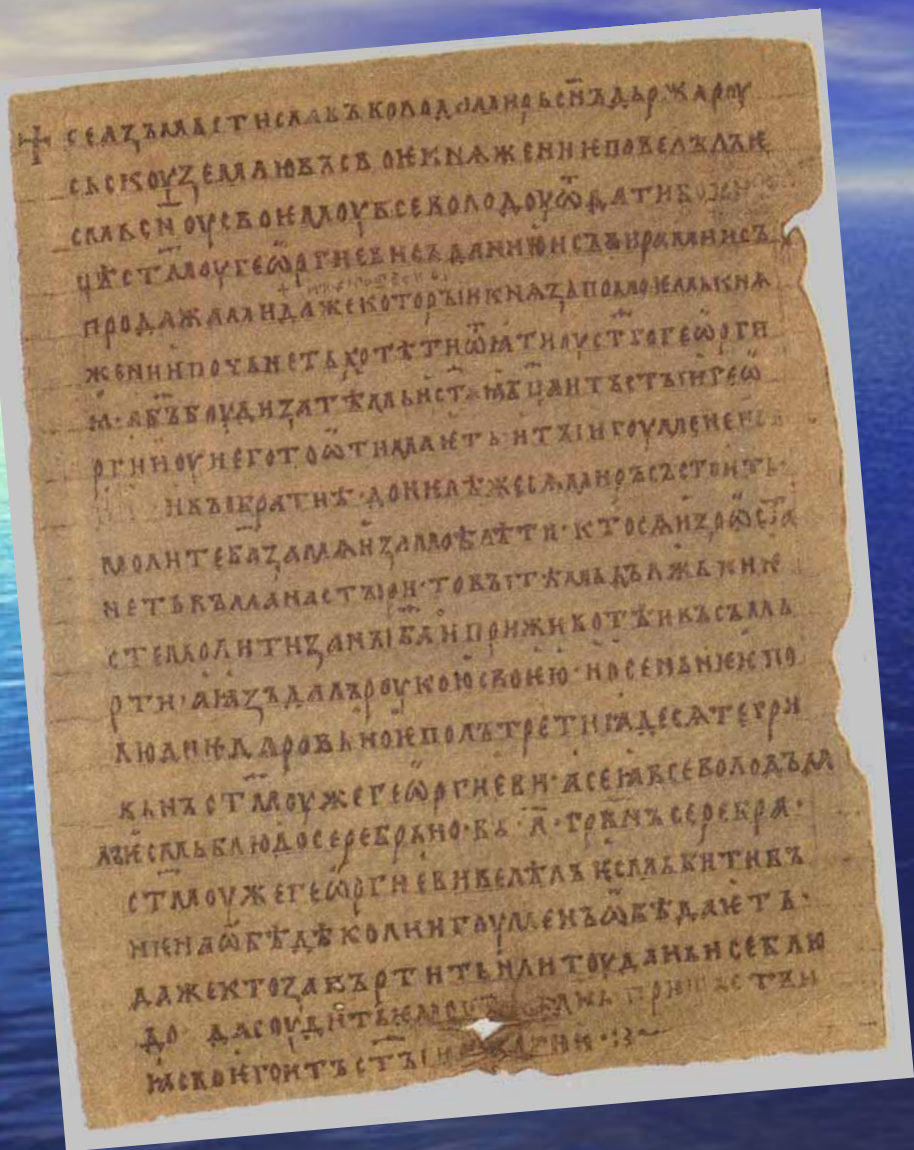 ✝ се азъ мьстиславъ володимирь сн҃ъ дьржа роу
сьскоу землю въ своѥ кнѧжениѥ повелѣлъ ѥ
смь сн҃оу своѥмоу всеволодоу ѿдати боуицѣ
ст҃моу геѡргиеви съ данию и съ вирами и съ
продажами даже которыи кнѧзь по моѥмь кнѧ
жении почьнеть хотѣти ѿѧти оу ст҃го геѡрги
ꙗ · а бъ боуди за тѣмь и ст҃аꙗ бц҃а и тъ ст҃ыи геѡ
ргии оу него то ѿтимаѥть · и ты игоумене
и вы братиѣ · донелѣже сѧ миръ състоить ·
молите ба҃ за мѧ и за моѣ дѣти · кто сѧ изоѡста
неть въ манастыри · то вы тѣмь дължьни ѥ
сте молити за ны ба҃ и при животѣ и въ съмь
рти · а ꙗзъ далъ роукою своѥю · и осеньнеѥ по
людиѥ даровьноѥ полътретиꙗдесѧте гри
вьнъ ст҃моу же геѡргиеви · а се ꙗ всеволодъ да
лъ ѥсмь блюдо серебрьно · въ · л҃ · грв҃нъ серебра ·
ст҃моу же геѡргиеви велѣлъ ѥсмь бити въ
нѥ на ѡбѣдѣ коли игоуменъ ѡбѣдаѥть ·
даже кто запъртить или тоу дань и се блю
до · да соудить ѥмоу
ꙗ своѥго и тъ ст҃ыи